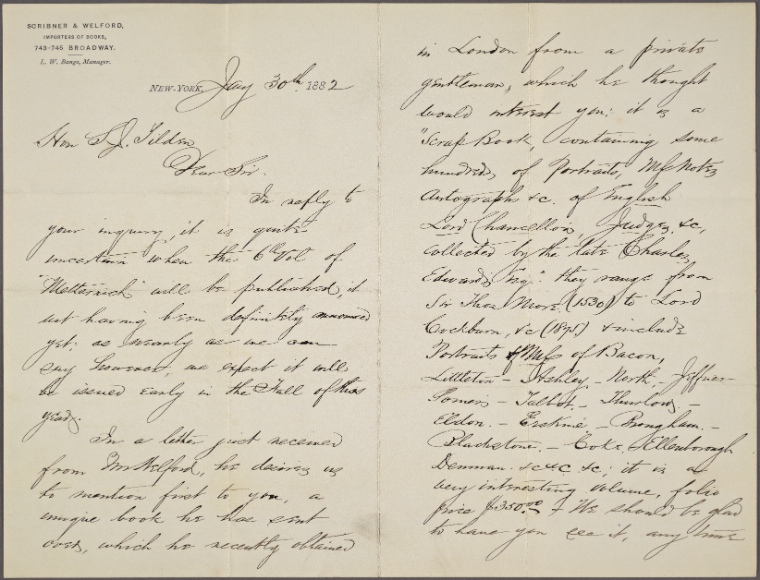 SCRIBNER & WELFORD,
IMPORTERS OF BOOKS,
743-745 BROADWAY.
L. W. Bangs, Manager.
NEW-YORK, Jany 30th 1882
Hon S. J. Tilden
Dear Sir.
In reply to
your inquiry, it is quite
uncertain when the 6th Vol of
"Metternich" will be published, it
not having been definitely announced
yet; as nearly as we can
say however, we expect it will
be issued early in the Fall of this
year.
In a letter just received
from Mr Welford, he desires us
to mention first to you, a
unique book he has sent
over, which he recently obtained
in London from a private
gentleman, which he thought
would interest you: it is a
"Scrap Book, containing some
hundreds of Portraits, Mss Notes
Autographs &c. of English
Lord Chancellors, Judges, &c,
collected by the late Charles
Edwards Esq." they range from
Sir Thos More (1530) to Lord
Cockburn, &c (1875) & include
Portraits & Mss of Bacon,
Littleton - Ashley - North - Jeffries -
Somers - Talbot - Thurlow -
Eldon - Erskine - Brougham -
Blackstone - Coke, Ellenborough
Denman &c &c &c; it is a
very interesting volume, folio
price $350.00 We should be glad
to have you see it, any time